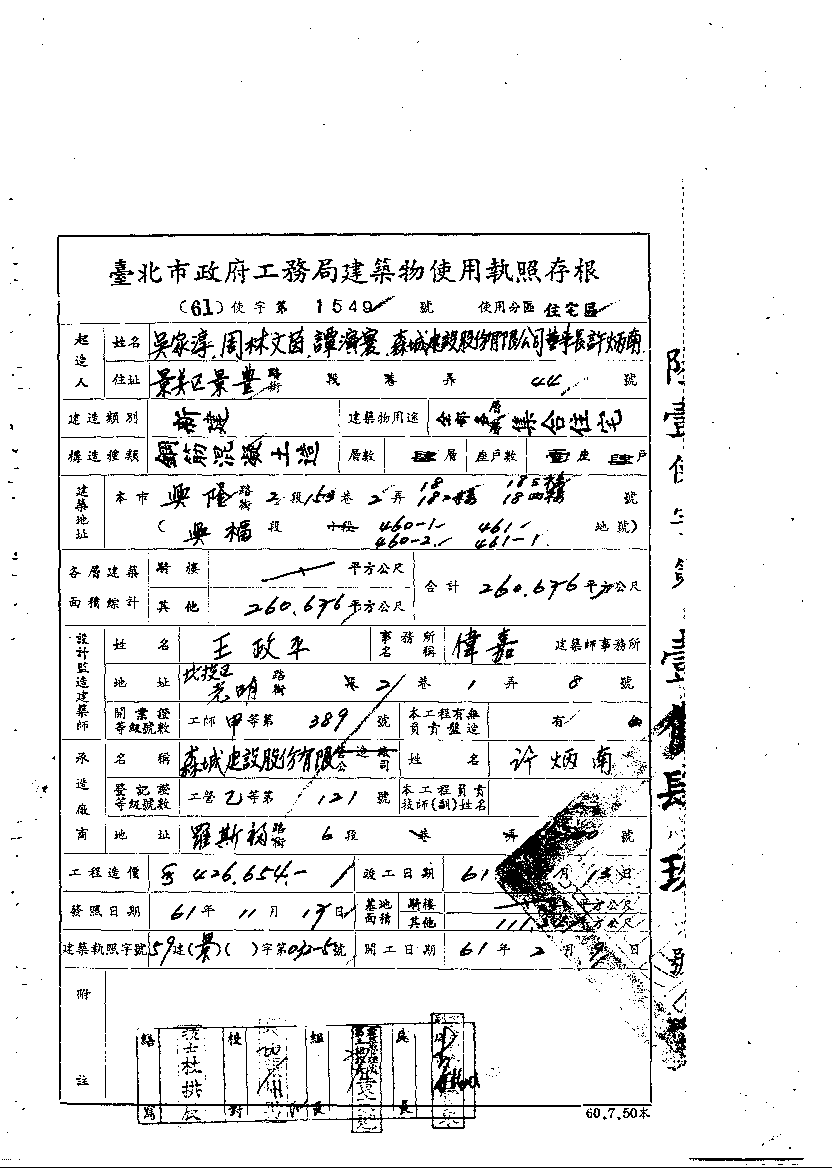 臺北市政府工務局建築物使用執照存根
(61)使字第 1549 號 使用分區 住宅區
起造人 姓名 吳家淳 周林文茵 譚演寰 森城建設股份有限公司董事長許炳南
住址 景美區景豐 路街 段 巷 弄 44 號
建造類別 新建 建築物用途 全部各層 集合住宅
構造種類 鋼筋混凝土造 層數 肆 層 座戶數 壹 座 肆 戶
建築地址 本市 興隆 路街 2 段 153 巷 2 弄 18 18二樓 18三樓 18四樓 號
( 興福 段 小段 460-1 461 地號)
460-2 461-1
各層建築面積綜計 騎樓 平方公尺 合計 260.676 平方公尺
其他 260.676 平方公尺
設計監造建築師 姓名 王政平 事務所名稱 偉嘉 建築師事務所
地址 北投區光明 路街 段 2 巷 1 弄 8 號
開業證等級號數 工師 甲 等第 389 號 本工程有無負責監造 有
承造廠商 名稱 森城建設股份有限 營造公司 姓名 許炳南
登記證等級號數 工營 乙 等第 121 號 本工程負責技師(副)姓名
地址 羅斯福 路街 6 段 巷 弄 號
工程造價 426,654.- 竣工日期 61 月 13 日
發照日期 61 年 11 月 日 基地面積 騎樓 平方公尺
其他 平方公尺
建築執照字號 59 建(景)( )字第 號 開工日期 61 年 2 月 日
附註
繕寫 校對 組長 局長
60.7.50本